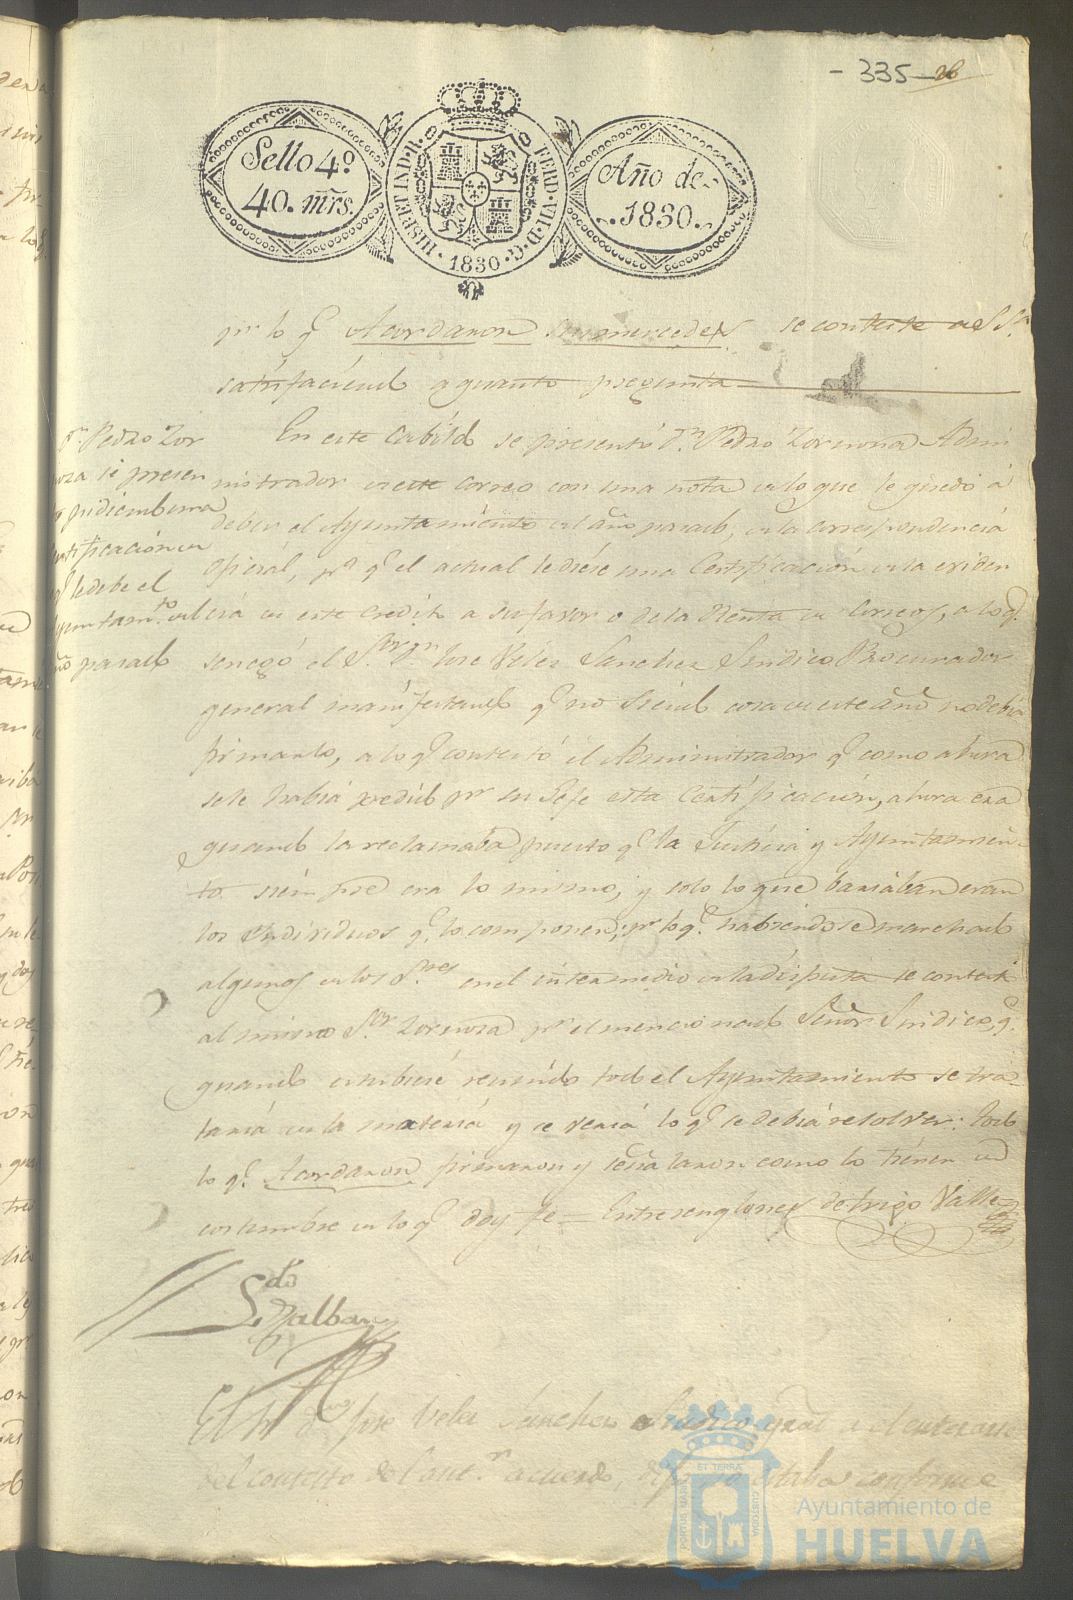 - 335 -
Sello 4º
40. mrs.
HISP. ET IND. R.
FERD. VII. D. G.
1830
Año de
1830.
pr lo q. Acordaron sus mercedes se conteste a S.S.
satisfaciend a quanto pregunta
Dn. Pedro Zor
noza se presen
to pidiendo una
certificación en
q. le debe el
Ayuntamto. en el
año pasado
En este Cabildo se presentó Dn. Pedro Zornoza Admi
nistrador en este Correo con una nota en lo que le quedó á
deber el Ayuntamiento en el año pasado, en la correspondencia
oficial, pa. q. el actual le diese una Certificación en la existen
cia en este credito a su favor o de la Renta en Correos, a lo q.
se negó el Sor. Dn. Jose Velez Sanchez Sindico Procurador
general manifestando q. no siendo cosa en este año no debia
firmarlo, a lo q. contestó el Administrador q. como ahora
se le habia pedido pr. su Gefe esta Certificación, ahora era
quando la reclamaba puesto q. la Justicia y Ayuntamien-
to siempre era lo mismo, y solo lo que bariaban eran
los Yndividuos q. lo componen; pr. lo q. habiendose marchado
algunos en los Sres. en el intermedio en la disputa se contestó
al mismo Sor. Zornoza pr. el mencionado Señor Sindico, q.
quando estubiese reunido todo el Ayuntamiento se tra-
taria en la materia y se veria lo q. se debia resolver: todo
lo q. Acordaron firmaron y señalaron como lo tienen en
costumbre en lo q. doy fe = Entrerenglones de trigo Valle
El Sr. Dn. Jose Velez Sanchez Sindico gral a el enterarse
del contesto del antr. acuerdo, estaba conforme
PORTUS MARIS ET TERRAE CUSTODIA
Ayuntamiento de
HUELVA